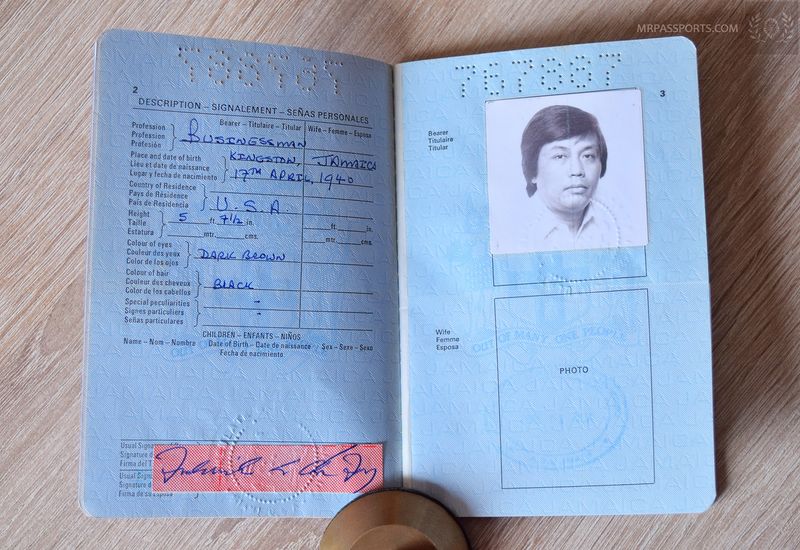 MRPASSPORTS.COM
767807
767807
2
DESCRIPTION – SIGNALEMENT – SEÑAS PERSONALES
Bearer – Titulaire – Titular
Wife – Femme – Esposa
Profession
Profession
Profesión
BUSINESSMAN
Place and date of birth
Lieu et date de naissance
Lugar y fecha de nacimiento
KINGSTON, JAMAICA
17TH APRIL, 1940
Country of Residence
Pays de Résidence
País de Residencia
U.S.A
Height
Taille
Estatura
5 ft. 7½ in.
mtr. cms.
ft. in.
mtr. cms.
Colour of eyes
Couleur des yeux
Color de los ojos
DARK BROWN
Colour of hair
Couleur des cheveux
Color de los cabellos
BLACK
Special peculiarities
Signes particuliers
Señas particulares
CHILDREN – ENFANTS – NIÑOS
Name – Nom – Nombre
Date of Birth – Date de naissance
Fecha de nacimiento
Sex – Sexe – Sexo
Usual
Signature
Firma del
Usual
Signature
Firma de su
3
Bearer
Titulaire
Titular
Wife
Femme
Esposa
OUT OF MANY, ONE PEOPLE
PHOTO